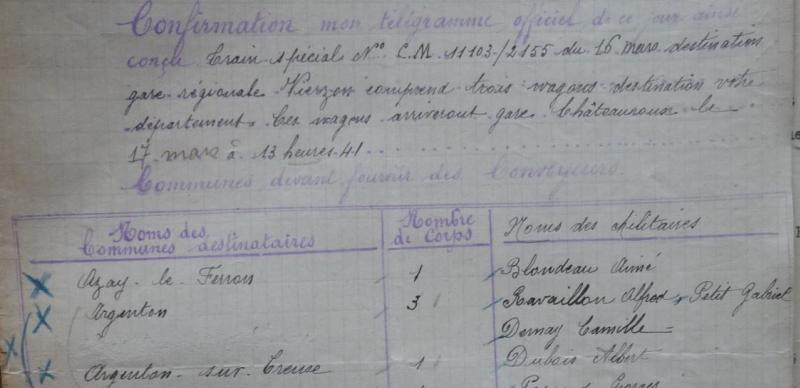 Confirmation mon télégramme officiel de ce jour ainsi
conçu Train spécial N° C.M. 11103/2155 du 16 mars destination
gare régionale Vierzon comprend trois wagons destination votre
département. Ces wagons arriveront gare Châteauroux le
17 mars à 13 heures 41
Communes devant fournir des Convoyeurs.
Noms des Communes destinataires
Nombre de Corps
Noms des Militaires
Azay-le-Ferron 1 Blondeau Aimé
Argenton 3 Ravaillon Alfred, Petit Gabriel
Dernay Camille
Argenton-sur-Creuse 1 Dubois Albert
Georges